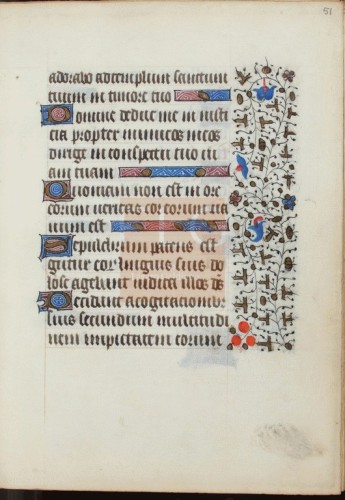 51
adorabo ad templum sanctum
tuum in timore tuo
Domine deduc me in iusti
cia propter inimicos meos
dirige in conspectu tuo vi
am tuam
Quoniam non est in ore
eorum veritas cor eorum va
num est
Sepulchrum patens est
guttur eor linguis suis do
lose agebant iudica illos ds
Decidant a cogitationibz
suis secundum multitudi
nem impietatem eorum